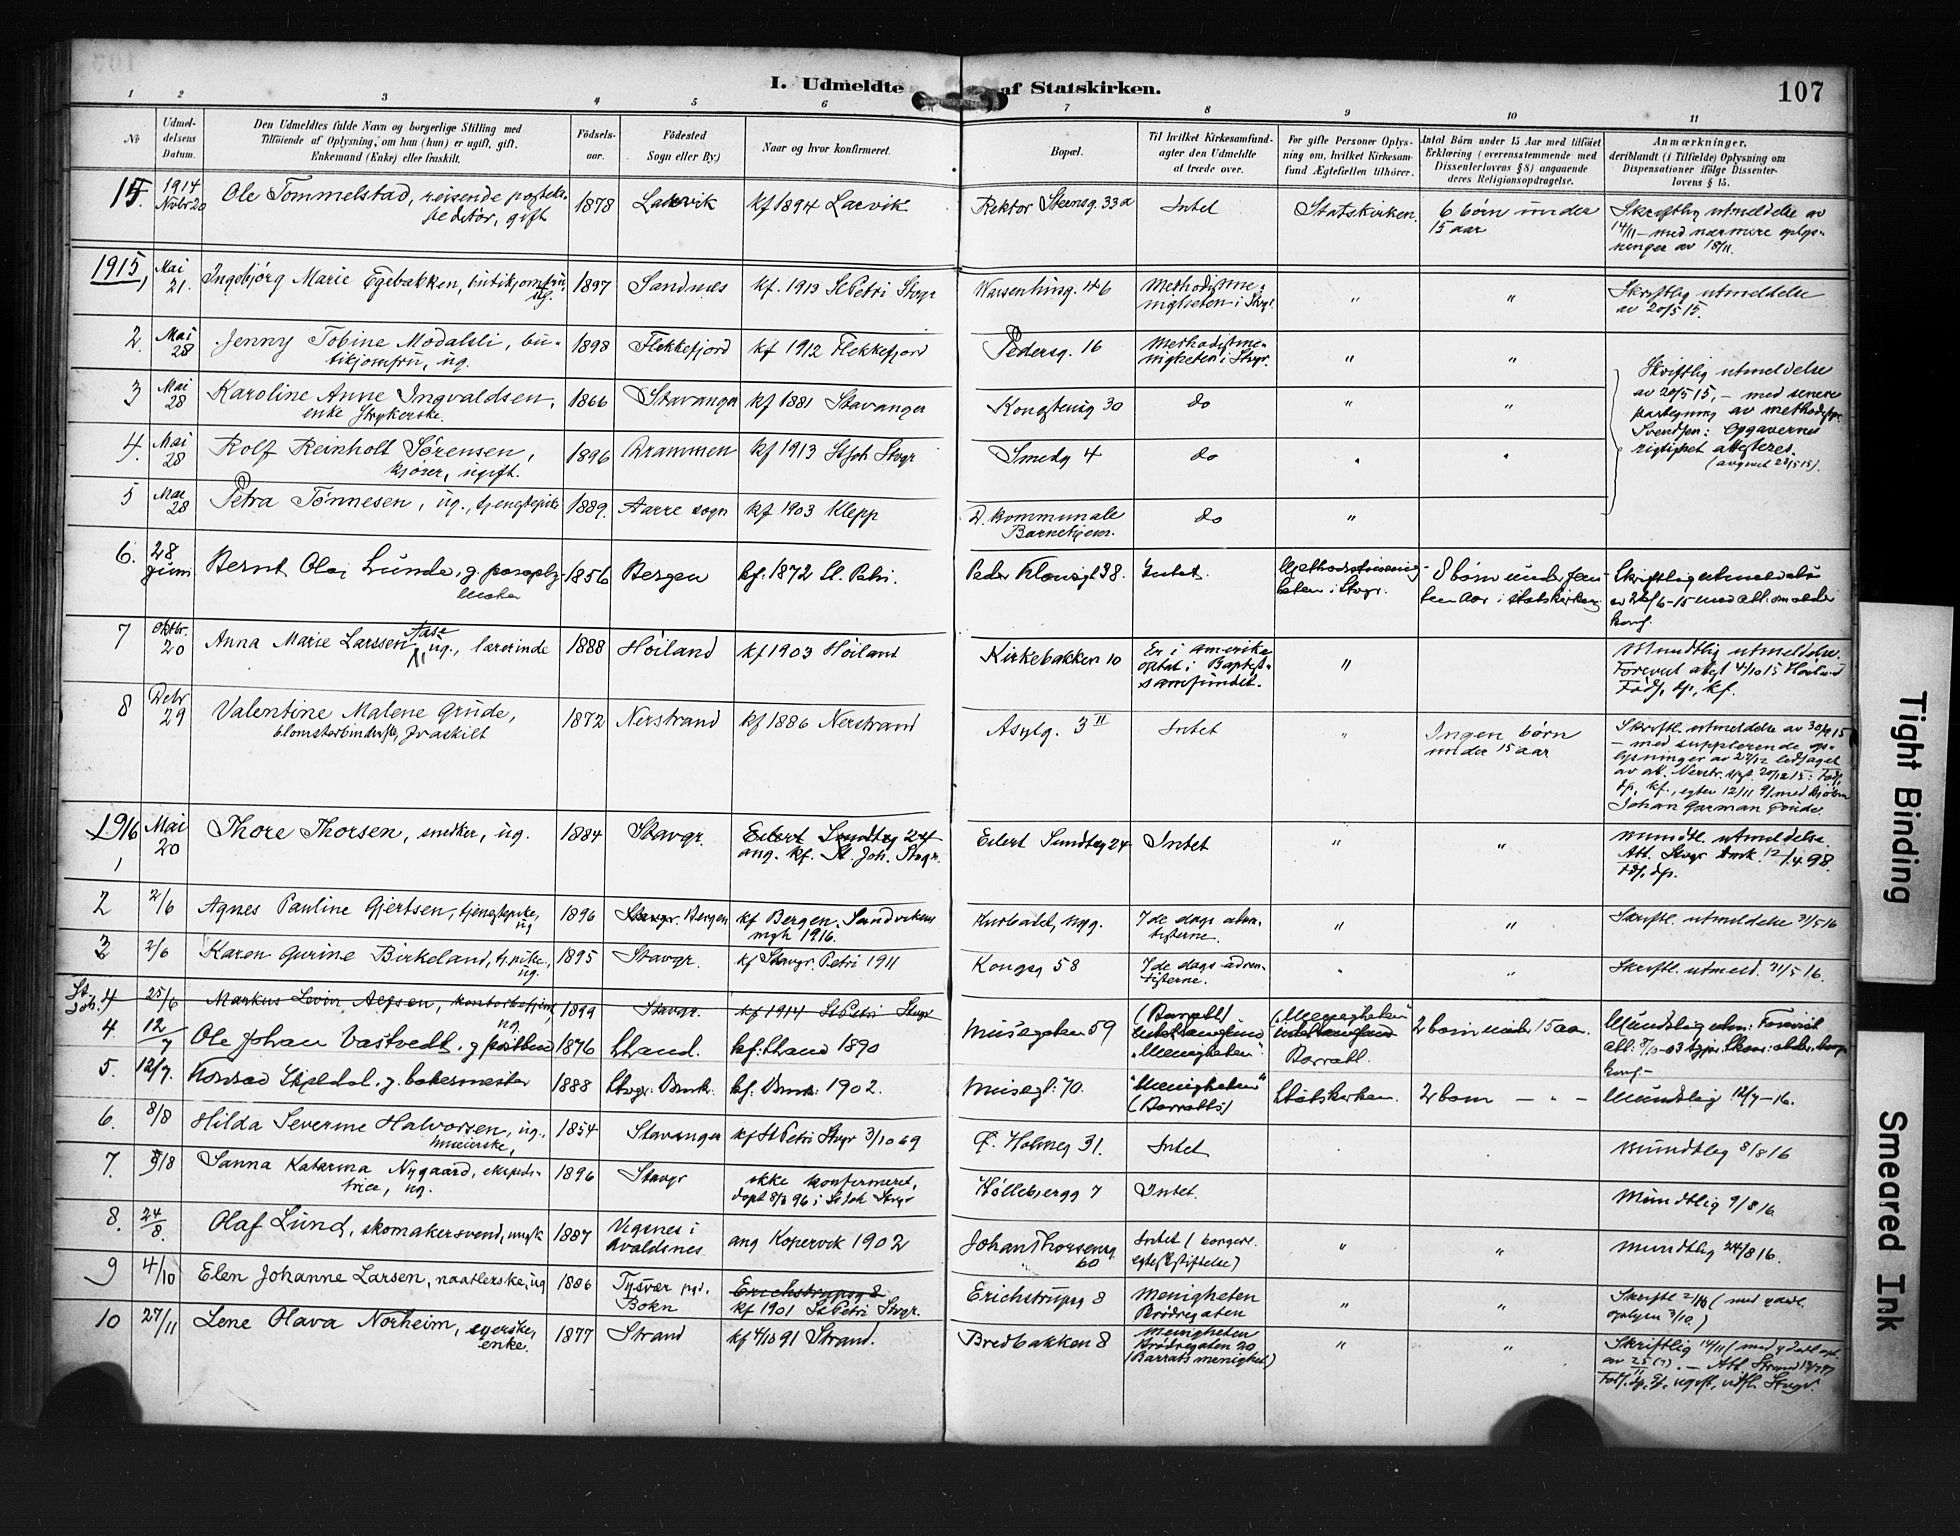 I. Udmeldte af Statskirken.
107
1 2 3 4 5 6 7 8 9 10 11
No
Udmeldelsens Datum.
Den Udmeldtes fulde Navn og borgerlige Stilling med
Tilföiende af Oplysning, om han (hun) er ugift, gift,
Enkemand (Enke) eller fraskilt.
Födselsaar.
Födested
Sogn eller By.
Naar og hvor konfirmeret.
Bopæl.
Til hvilket Kirkesamfund
agter den Udmeldte
at træde over.
For gifte Personer Oplysning
om, hvilket Kirkesamfund
Ægtefællen tilhörer.
Antal Börn under 15 Aar med tilföiet
Erklæring (overensstemmende med
Dissenterlovens § 8) angaaende
deres Religionsopdragelse.
Anmærkninger,
deriblandt (i Tilfælde) Oplysning om
Dispensationer ifölge Dissenterlovens § 15.
15 1914 Nvbr 20 Ole Tommelstad, reisende postekspeditør, gift 1878 Larvik kf 1894 Larvik Rektor Steensg. 33a Intet Statskirken. 6 børn under 15 aar Skriftlig utmeldelse av 14/11 – med nærmere oplysninger av 18/11.
1915
1 Mai 21. Ingebjörg Marie Egebakken, butikjomfru, ug. 1897 Sandnæs kf. 1913 St Petri Stvgr Waisenhusg. 46 Methodistmenigheten i Stvgr. " " Skriftlig utmeldelse av 20/5 15.
2. Mai 28 Jenny Tobine Modalsli, butikjomfru, ug. 1898 Flekkefjord kf 1912 Flekkefjord Pedersg. 16 Methodistmenigheten i Stvgr. " "
3 Mai 28 Karoline Anne Ingvaldsen, enke Strykerske. 1866 Stavanger kf 1881 Stavanger Kongstensg 30 do " "
Skriftlig utmeldelse av 20/5 15, – med senere paategning av methodistpr. Svendsen: Opgavernes rigtighet attesteres.
4. Mai 28 Rolf Reinholt Sørensen, kjører, ugift. 1896 Drammen kf 1913 St Joh Stvgr Smedg 4 do " "
5 Mai 28 Petra Tønnesen, ug., tjenestepike 1889. Aarre sogn kf 1903 Klepp D. kommunale Barnehjem. do "
6. 28 juni Bernt Olai Lunde, g. paraplymaker 1856 Bergen kf. 1872 St. Petri. Peder Klowsgt 38. Intet. Methodistmenigheten i Stvgr. 8 børn under femten Aar i statskirken
7 Oktbr. 20 Anna Marie Larssen Aase ug., lærerinde 1888 Høiland kf 1903 Høiland Kirkebakken 10 Er i Amerika optat i Baptistsamfundet. " Mundtlig utmeldelse. Forevist att 4/10 15 Høiland Föds, dp, kf.
8 Dcbr 29 Valentine Malene Grude, blomsterbinderske, fraskilt 1872 Nerstrand kf 1886 Nerstrand Asylg. 3 II Intet " Ingen børn under 15 aar Skriftl. utmeldelse av 30/9 15 – med supplerende oplysninger av 27/12 ledsaget av att. Nerstr. 20/12 15: Föds, dp, kf., egter 12/11 91 med Johan Garman Grude.
1916
1 Mai 20 Thore Thorsen, snedker, ug. 1884 Stavgr. Eilert Sundtsg 24 ang. kf. St. Joh. Stvgr. Eilert Sundtsg 24 Intet " " Mundtl. utmeldelse. Att. Stvgr Dmk. 12/4 98. föds, dp.
2 2/6 Agnes Pauline Gjertsen, tjenestepike, ug 1896 Stavgr. Bergen kf Bergen. Sandvikens mgh 1916. 7de dags adventisterne. " " Skriftl. utmeldelse 31/5 16
3 2/6 Karen Gurine Birkeland, tj.pike, ug. 1895 Stavgr. kf Stavgr. Petri 1911 Kongsg 58 7de dags adventisterne. " " Skriftl. utmeld. 31/5 16.
St. Joh. 4 25/6 Markus Levin 1899 Stavgr. kf 1914 St Petri Stvgr
4. 12/7 Ole Johan Vastvedt, g 1876 Strand. kf: Strand 1890 Musegaten 59 (Barratt) "Menigheten". Barratt. 2 barn under 15 aar.
5. 12/7. Konrad Skjeldal, g. bakermester 1888 Stvgr. Dmk. kf: Dmk: 1902. Musegt: 70. "Menigheten" (Barratts) Statskirken. 2 barn – " – Mundtlig 12/7–16.
6. 8/8 Hilda Severine Halvorsen, ug., 1854 Stavanger kf St Petri Stvgr 3/10 69 Ø. Holmeg 31. Intet Mundtlig 8/8 16
7. 9/8 Sanna Katarina Nygaard, ekspeditrice, ug. 1896 Stavgr ikke konfirmeret, døpt 8/3 96 i St Joh Stvgr Høllebergg 7 Intet. Mundtlig 9/8 16.
8. 24/8. Olaf Lund, skomakersvend, ungk 1887 Vigsnes i Avaldsnes ang Kopervik 1902 Johan Thorsensg 60 Intet (borgerl. egteskstiftelse) " " Mundtlig 24/8 16.
9 4/10 Elen Johanne Larsen, naatlerske, ug 1886 Tysvær pgd. Bokn Erichstrupsg 8 kf 1901 St Petri Stvgr. Erichstrupsg 8 Menigheten Brødregaten " "
10 27/11 Lene Olava Norheim, syerske, enke. 1877 Strand kf 4/10 91 Strand. Bredbakken 8 Menigheten Brødregaten 20 (Barrats menighet) " "
Tight Binding
Smeared Ink